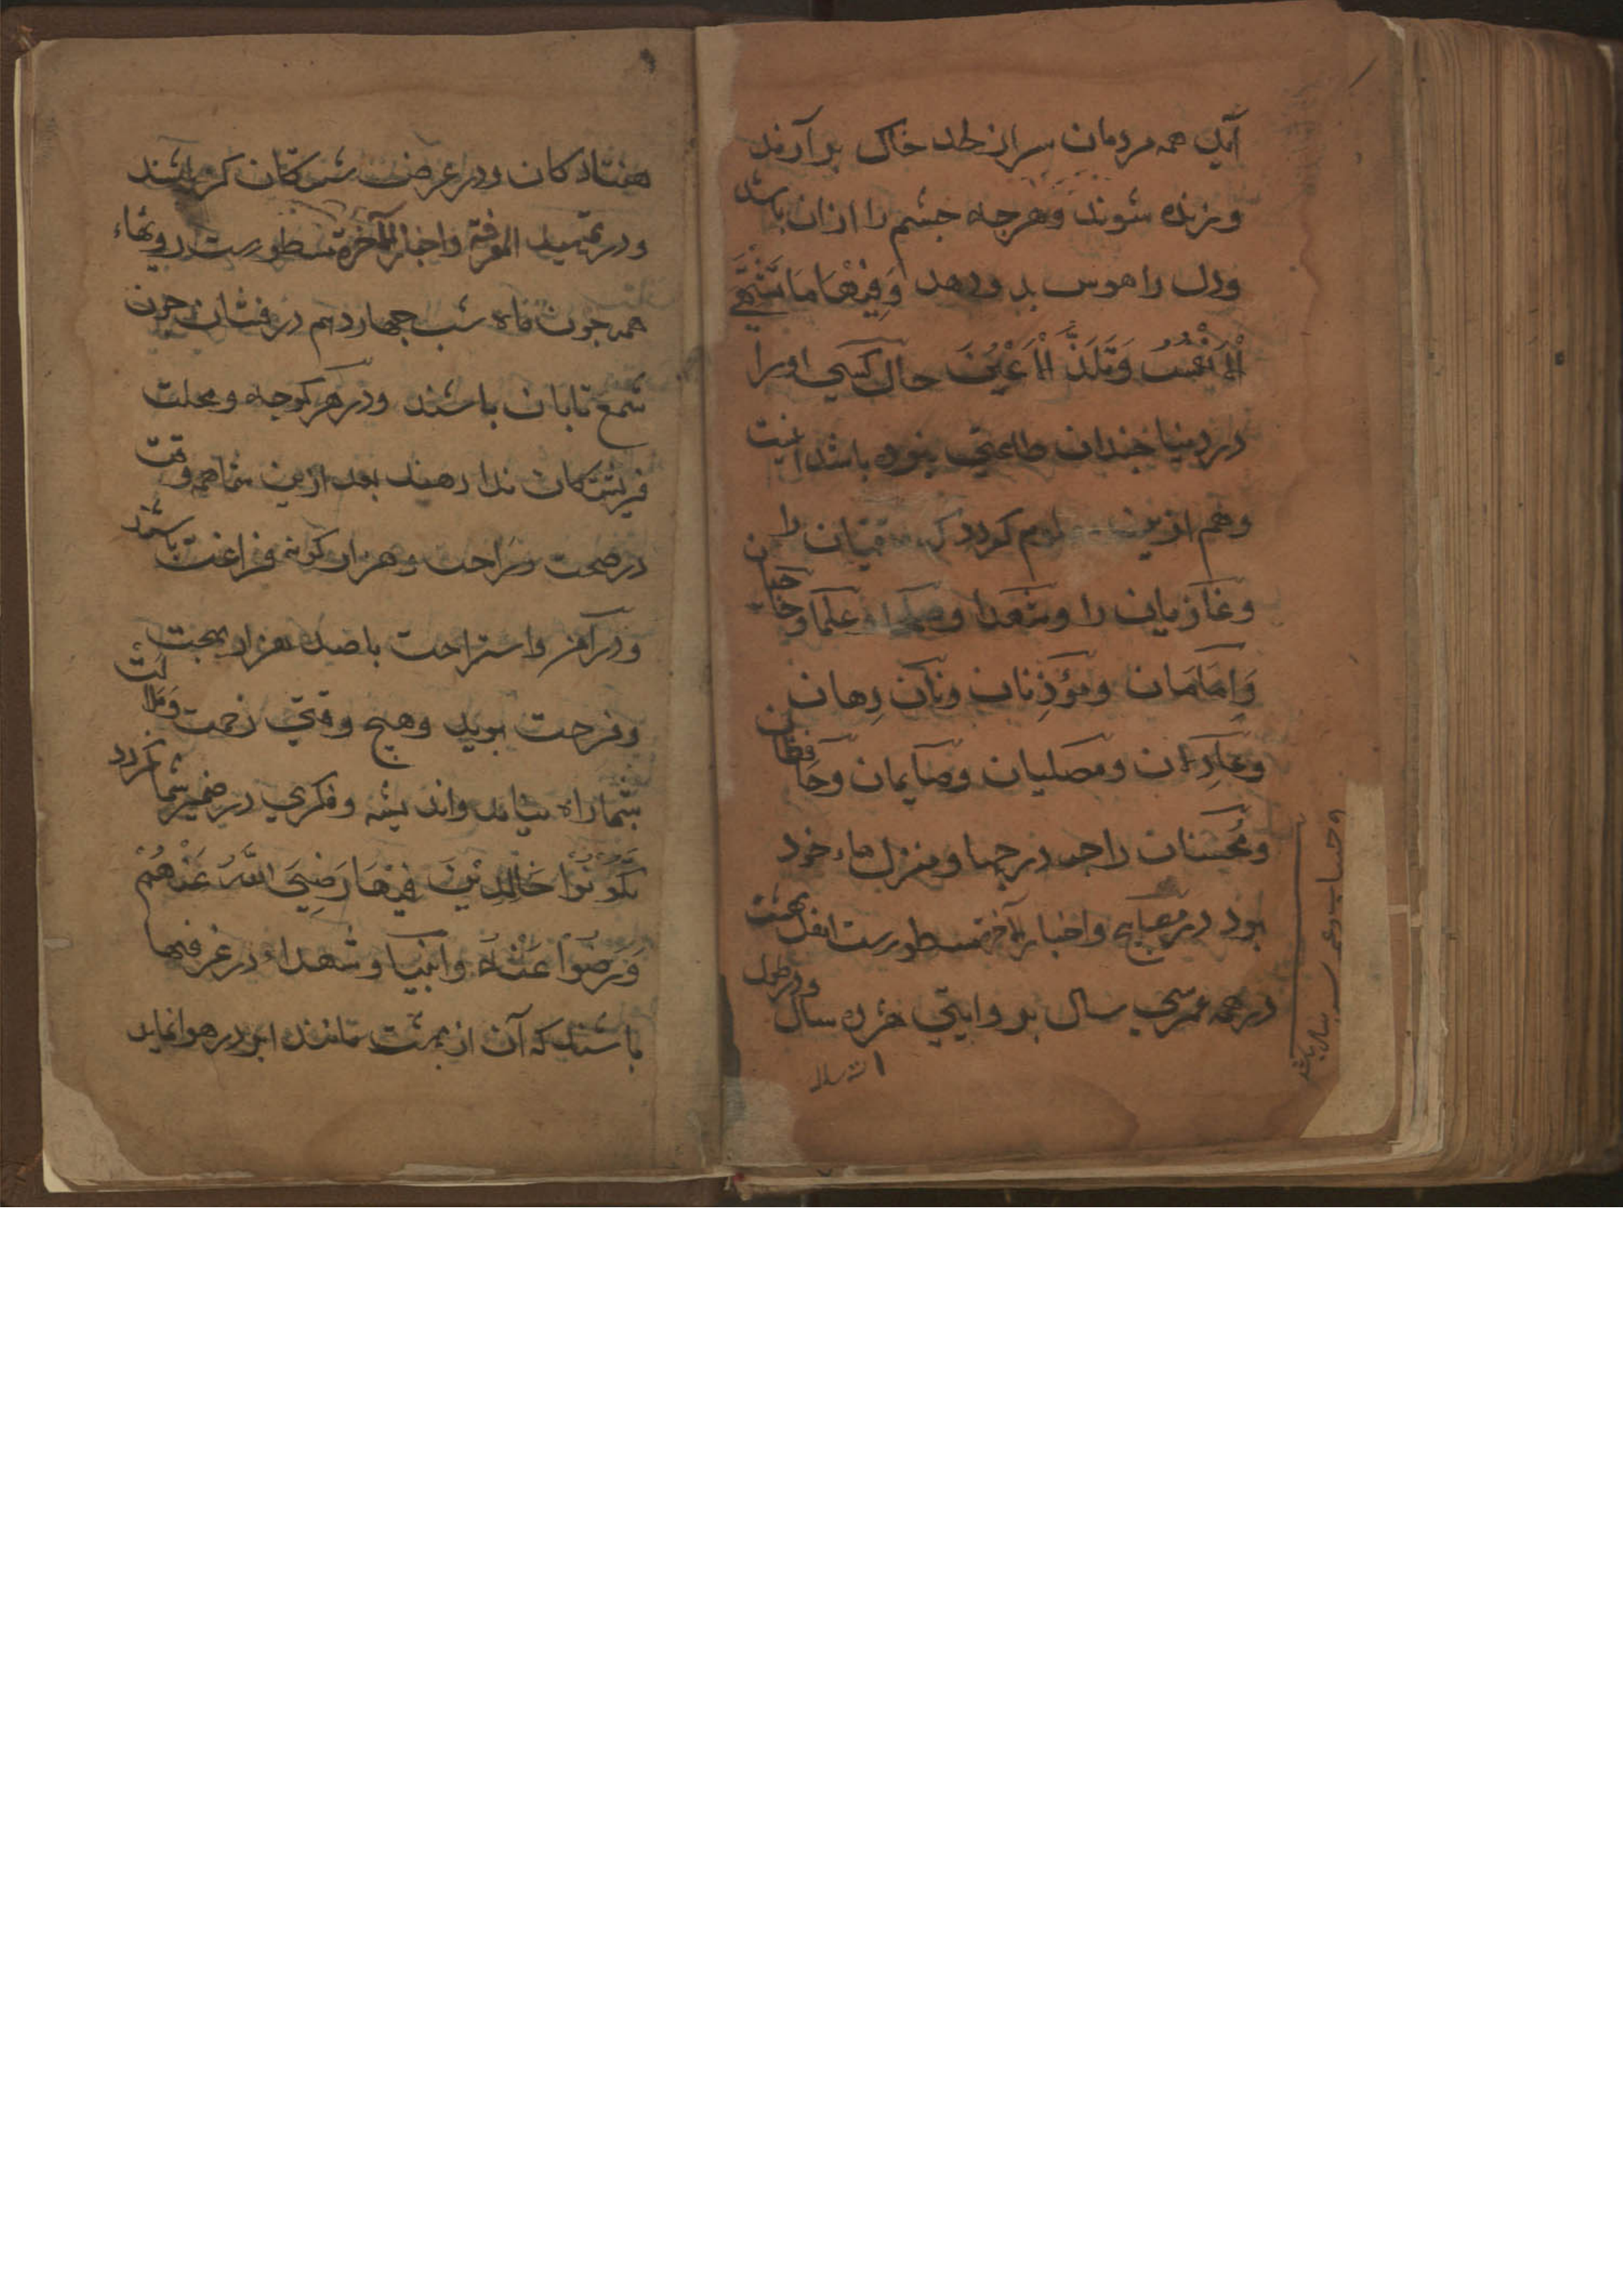 آید همه مردمان سر از لحد خاک بر آرند
و زنده شوند و هرچه چشم را از ان باشد
و دل را هوس بدو دهد وَفِیْهَا مَا تَشْتَهِي
الْاَنْفُسُ وَتَلَذُّ الْاَعْیُنَ حال کسی او را
در دنیا چندان طاعتی نبوده باشد اینت
و هم ازین گردد که را
و غازیان را و شعدا و صلحا و علما و حاجیان
وَاِمَامَان و مؤَذِنان و نان دِهان
و عَادِلان و مصلیان و صایمان و حافظان
و مُحسنان را چه درجها و منزل هاء خود
بود در مصابیح و اخبار الآخرة مسطورست اهل بهشت
در همه عمر سی سال بر وایتی هژده سال و در طول
و حساب و عمر سی سال باشد
هفتاد کان و در عرض شش کتان کز باشند
و در تمهید المعرفة و اخبار الآخرة مسطورست رویهاء
همه چون ماه شب چهاردهم درفشان چون
شمع تابان باشند و در هر کوچه و محلت
فریشتکان ندا دهند بعد ازین شما همه وقت
در صحت و راحت و هزار کونه فراغت باشند
و در آمن و استراحت با صد هزار بهجت
و فرحت بوید و هیچ وقتی زحمت و ملالت
بشما راه نیابد و اندیشه و فکری در ضمیر شما نکردد
تَکُوْنُوْا خَالِدِیْنَ فِیْهَا رَضِيَ اللّٰهُ عَنْهُمْ
وَرَضُوْا عَنْهُ و انبیا و شهداء در غرفها
باشند که آن از بهشت مانند ابر در هوا نماید